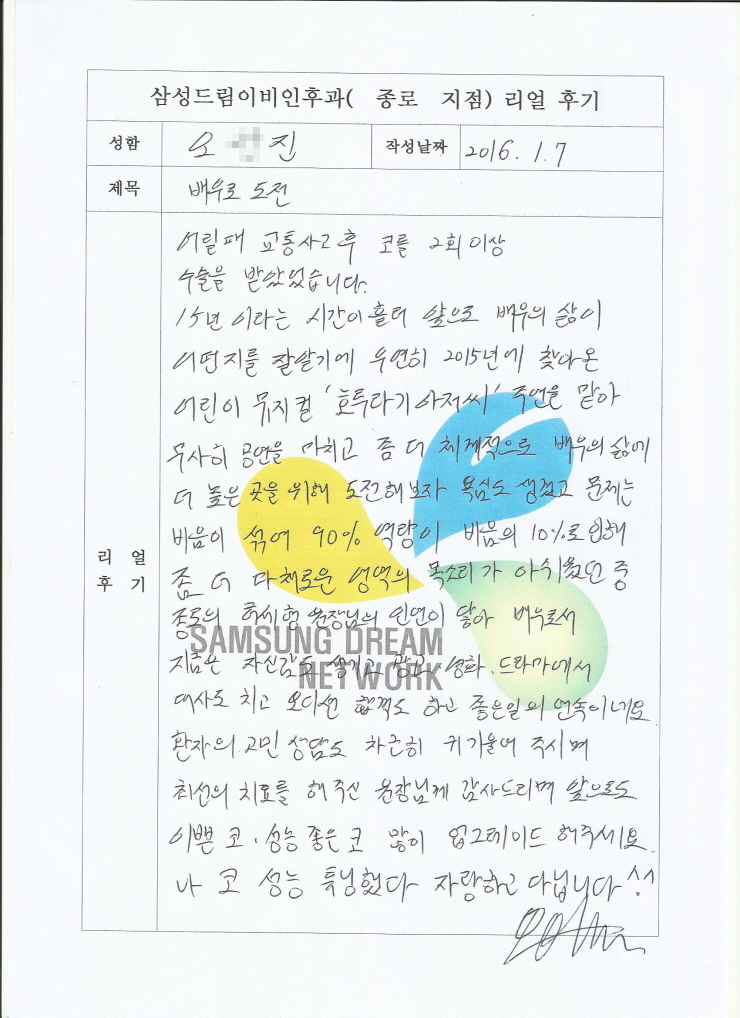 삼성드림이비인후과( 종로 지점) 리얼 후기
성함 오 진 작성날짜 2016. 1. 7
제목 배우로 도전
리얼 후기
어릴때 교통사고 후 코를 2회 이상
수술을 받았었습니다.
15년 이라는 시간이 흘러 앞으로 배우의 삶이
어떤지를 잘알기에 우연히 2015년에 찾아온
어린이 뮤지컬 '호루라기아저씨' 주연을 맡아
무사히 공연을 마치고 좀 더 체계적으로 배우의 삶에
더 높은 곳을 위해 도전해보자 욕심도 생겼고 문제는
비음이 섞여 90% 역량이 비음의 10%로 인해
좀 더 다채로운 영역의 목소리가 아쉬웠던 중
종로의 원장님의 인연이 닿아 배우로서
지금은 자신감도 생기고 광고. 영화. 드라마에서
대사도 치고 오디션 합격도 하고 좋은일의 연속이네요
환자의 고민 상담도 차근히 귀 기울여 주시며
최선의 치료를 해주신 원장님께 감사드리며 앞으로도
이쁜 코. 성능 좋은 코 많이 업그레이드 해주세요.
나 코 성능 튜닝했다 자랑하고 다닙니다 ^^
SAMSUNG DREAM
NETWORK